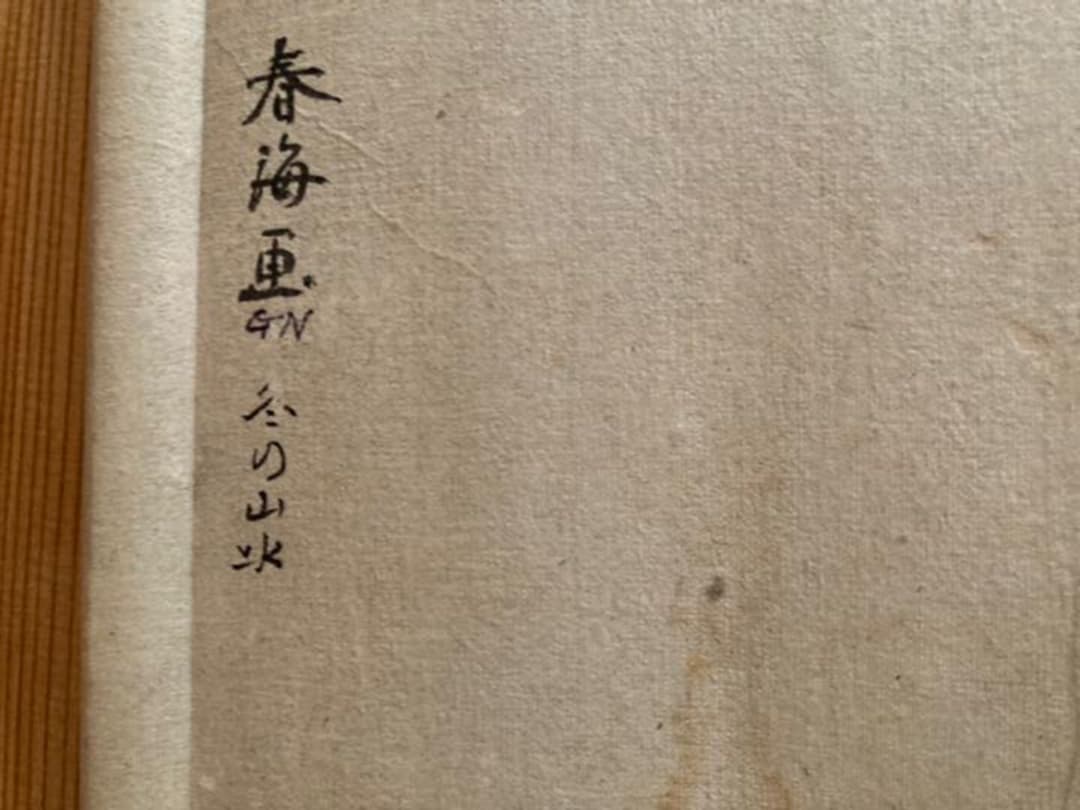 春海画
GN
冬の山水